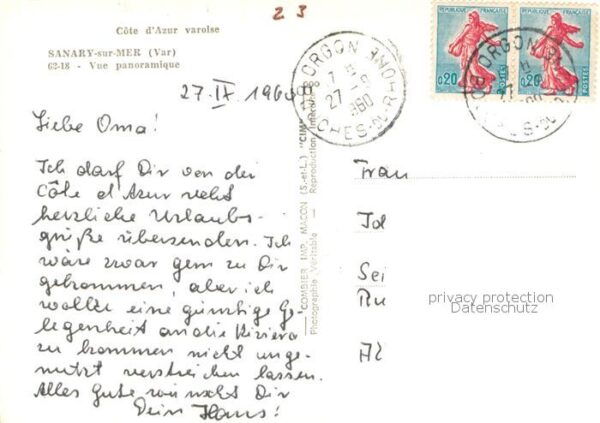 23
Côte d'Azur varoise
SANARY-sur-MER (Var)
62-18 - Vue panoramique
27.IX 1960
Liebe Oma!
Ich darf Dir von der
Côte d'Azur recht
herzliche Urlaubs-
grüße übersenden. Ich
wäre zwar gern zu Dir
gekommen, aber ich
wollte eine günstige Ge-
legenheit an die Riviera
zu kommen nicht unge-
nutzt verstreichen lassen.
Alles Gute wünscht Dir
Dein Hans!
COMBIER IMP. MACON (S.-et-L.) "CIM"
Photographie Véritable - Reproduction
ORGON
7 H
27 - 9
1960
BCHES-DU-RHONE
REPUBLIQUE FRANÇAISE
0,20
POSTES
REPUBLIQUE FRANÇAISE
0,20
POSTES
ORGON
Frau
Sei
privacy protection
Datenschutz